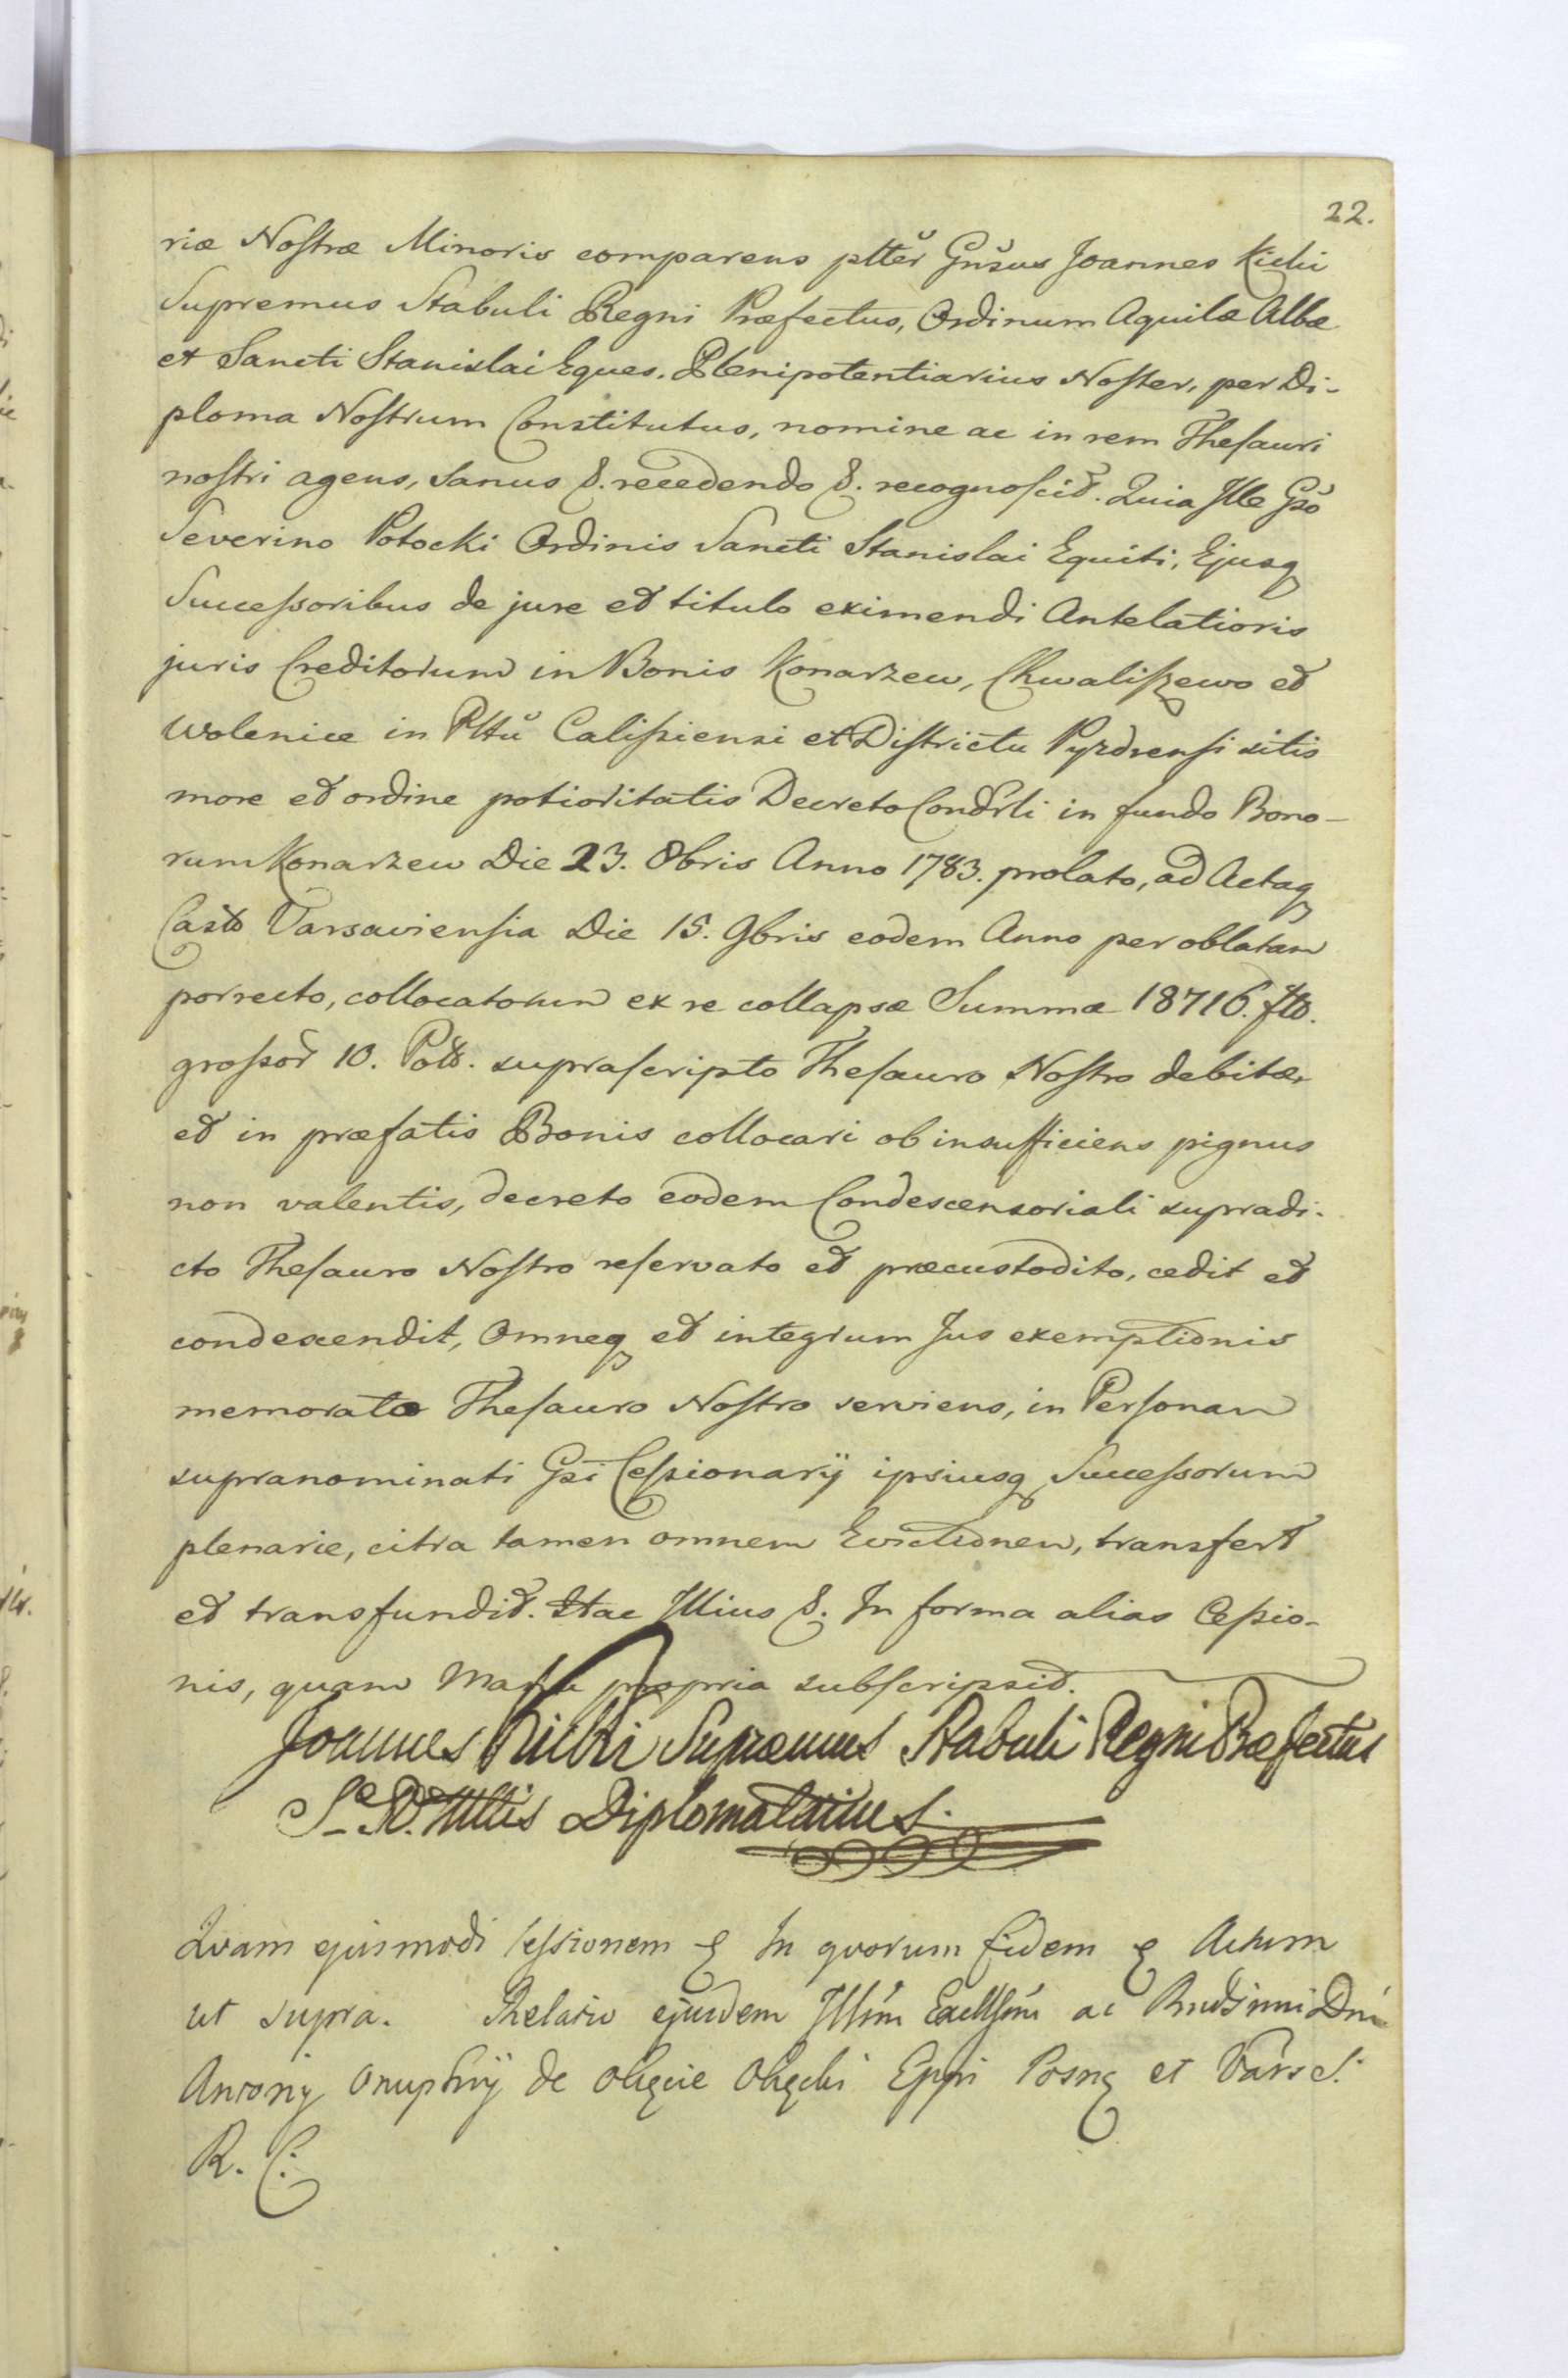 22.
riæ Nostræ Minoris comparens plltĕr Gnŝus Joannes Kicki
Supremus Stabuli Regni Præfectus, Ordinum Aquilæ Albæ
et Sancti Stanislai Eques. Plenipotentiarius Noster, per Di-
ploma Nostrum Constitutus, nomine ac in rem Thesauri
nostri agens, sanus &. recedendo &. recognoscit. Quia Ille Gsō
Severino Potocki Ordinis Sancti Stanislai Equiti, Ejusq
Successoribus de jure et titulo eximendi Antelatioris
juris Creditorum in Bonis Konarzew, Chwaliszewo et
Wolenice in Plttŭ Calissiensi et Districtu Pyzdrensi sitis
more et ordine potioritatis Decreto Condrli in fundo Bono-
rum Konarzew Die 23. 8bris Anno 1783. prolato, ad Actaq
Castr Varsaviensia Die 15. 9bris eodem Anno per oblatam
porrecto, collocatorum ex re collapsæ Summæ 18716. flor.
grossor 10. Poll. suprascripto Thesauro Nostro debitæ,
et in præfatis Bonis collocari ob insufficiens pignus
non valentis, decreto eodem Condescensoriali supradi-
cto Thesauro Nostro reservato et præcustodito, cedit et
condescendit, Omneq et integrum Jus exemptionis
memorato Thesauro Nostro serviens, in Personam
supranominati Gsi Cessionarij ipsiusq Successorum
plenarie, citra tamen omnem Evictionem, transfert
et transfundit. Hac Illius &. In forma alias Cessio-
nis, quam Manu propria subscripsit.
Joannes Kicki Supremus Stabuli Regni Præfectus
S. R. Mttis Diplomatarius.
Quam ejusmodi Cessionem & In quorum fidem & Actum
ut supra. Relatio ejusdem Illsm̄i Excllsm̄i ac Rndssimi Dnī
Antonij Onuphrij de Okęcie Okęcki Eppi Posnę et Vars S.
R. C.